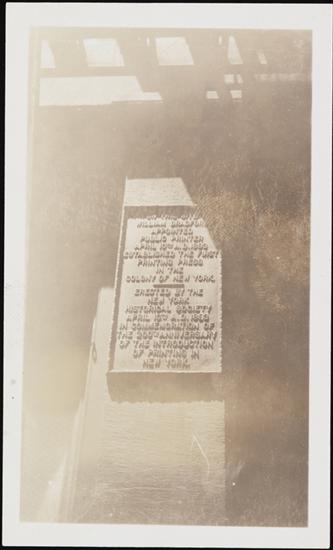 WILLIAM BRADFORD
APPOINTED
PUBLIC PRINTER
APRIL 10TH A.D. 1693
ESTABLISHED THE FIRST
PRINTING PRESS
IN THE
COLONY OF NEW YORK
ERECTED BY THE
NEW YORK
HISTORICAL SOCIETY
APRIL 10TH A.D. 1893
IN COMMEMORATION OF
THE 200TH ANNIVERSARY
OF THE INTRODUCTION
OF PRINTING IN
NEW YORK